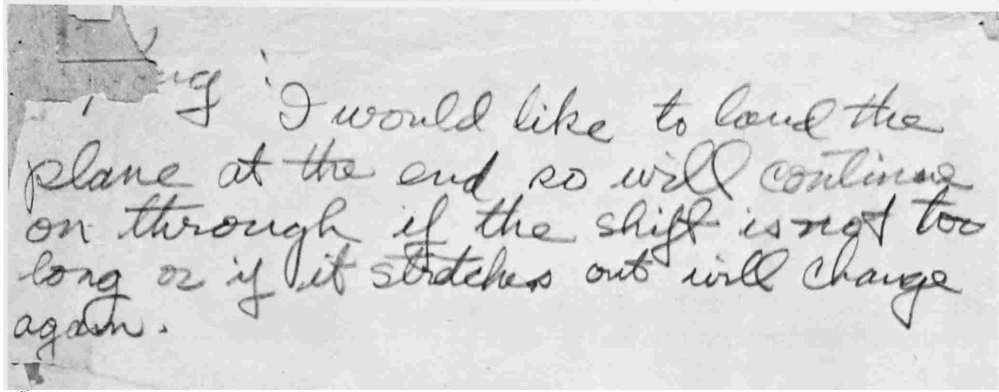 I would like to land the
plane at the end so will continue
on through if the shift is not too
long or if it stretches out will change
again.